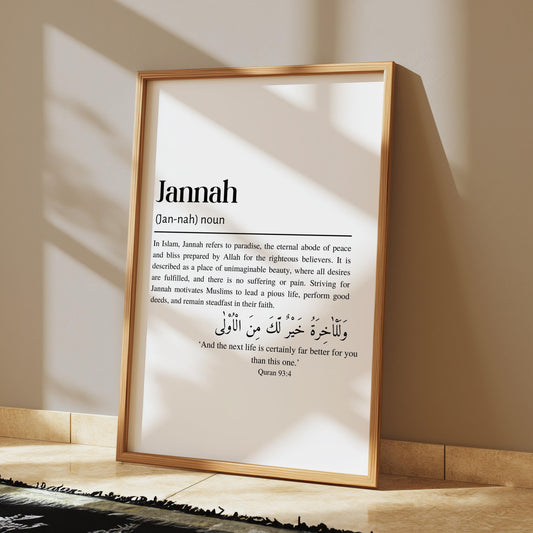 Jannah
(Jan-nah) noun
In Islam, Jannah refers to paradise, the eternal abode of peace
and bliss prepared by Allah for the righteous believers. It is
described as a place of unimaginable beauty, where all desires
are fulfilled, and there is no suffering or pain. Striving for
Jannah motivates Muslims to lead a pious life, perform good
deeds, and remain steadfast in their faith.
وَلَلْاٰخِرَةُ خَيْرٌ لَّكَ مِنَ الْاُوْلٰى
'And the next life is certainly far better for you
than this one.'
Quran 93:4